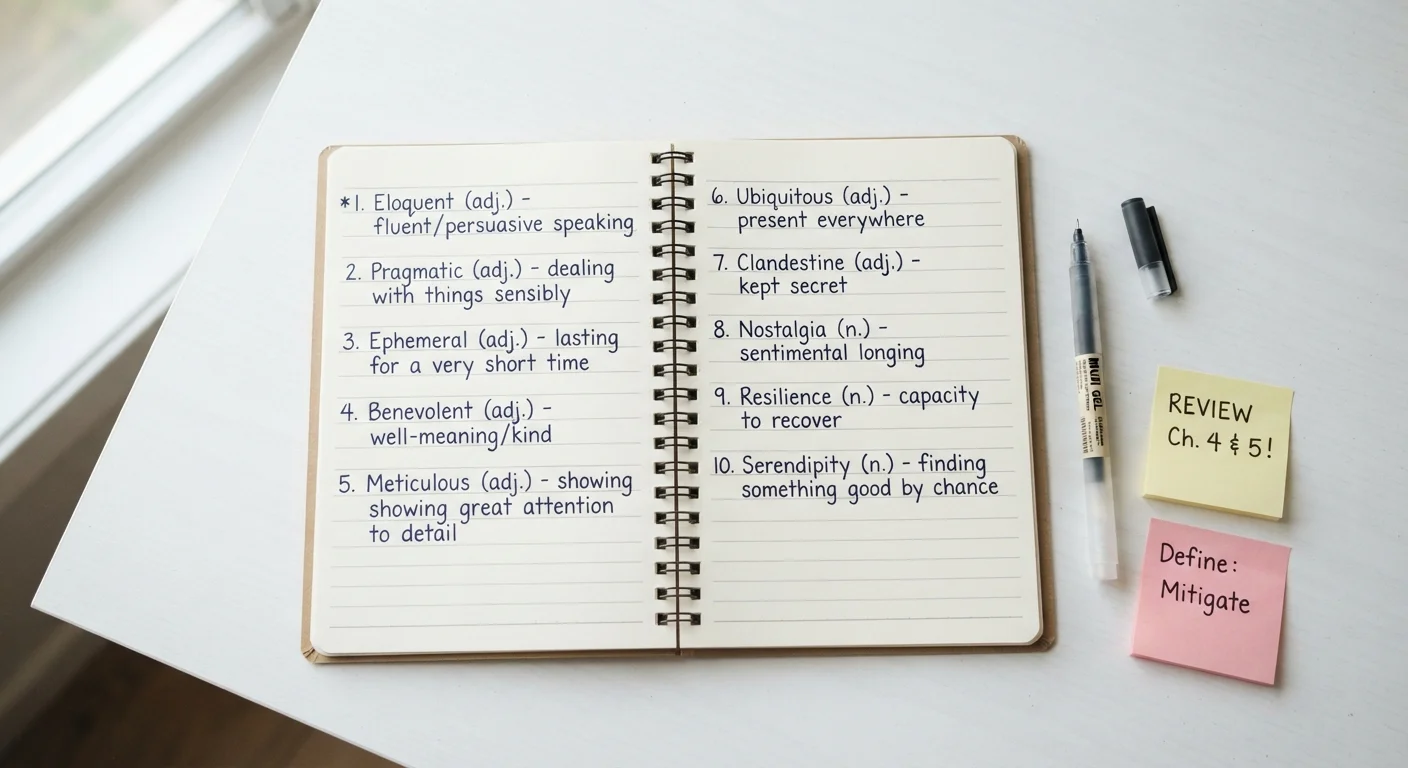 *1. Eloquent (adj.) –
fluent/persuasive speaking
2. Pragmatic (adj.) – dealing
with things sensibly
3. Ephemeral (adj.) – lasting
for a very short time
4. Benevolent (adj.) –
well-meaning/kind
5. Meticulous (adj.) – showing
showing great attention
to detail
6. Ubiquitous (adj.) –
present everywhere
7. Clandestine (adj.) –
kept secret
8. Nostalgia (n.) –
sentimental longing
9. Resilience (n.) – capacity
to recover
10. Serendipity (n.) – finding
something good by chance
REVIEW
Ch. 4 & 5!
Define:
Mitigate